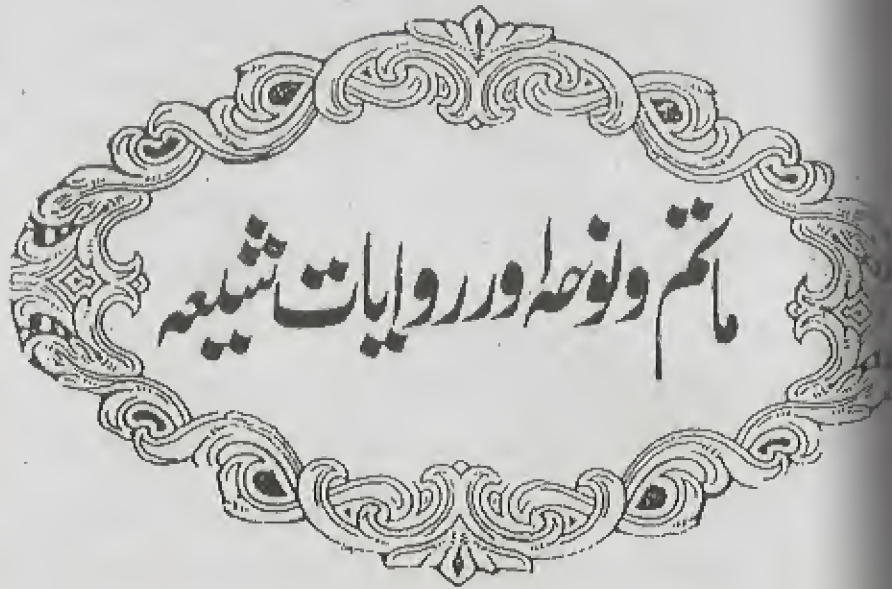 ماتم و نوحہ اور روایات شیعہ